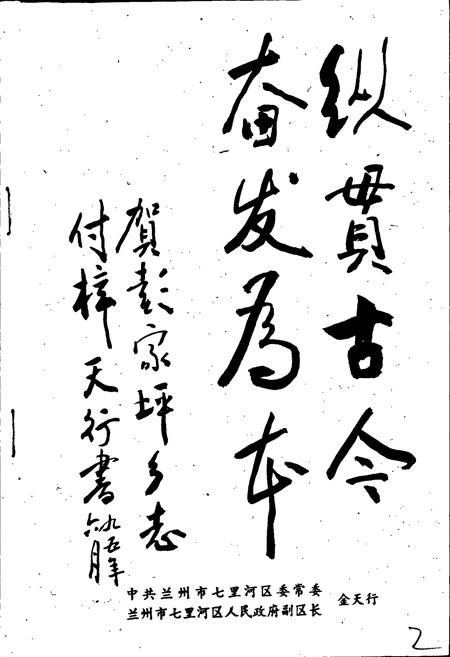 纵贯古今
奋发为本
贺彭家坪乡志
付梓 天行书 九五年
六月
中共兰州市七里河区委常委
兰州市七里河区人民政府副区长
金天行
2